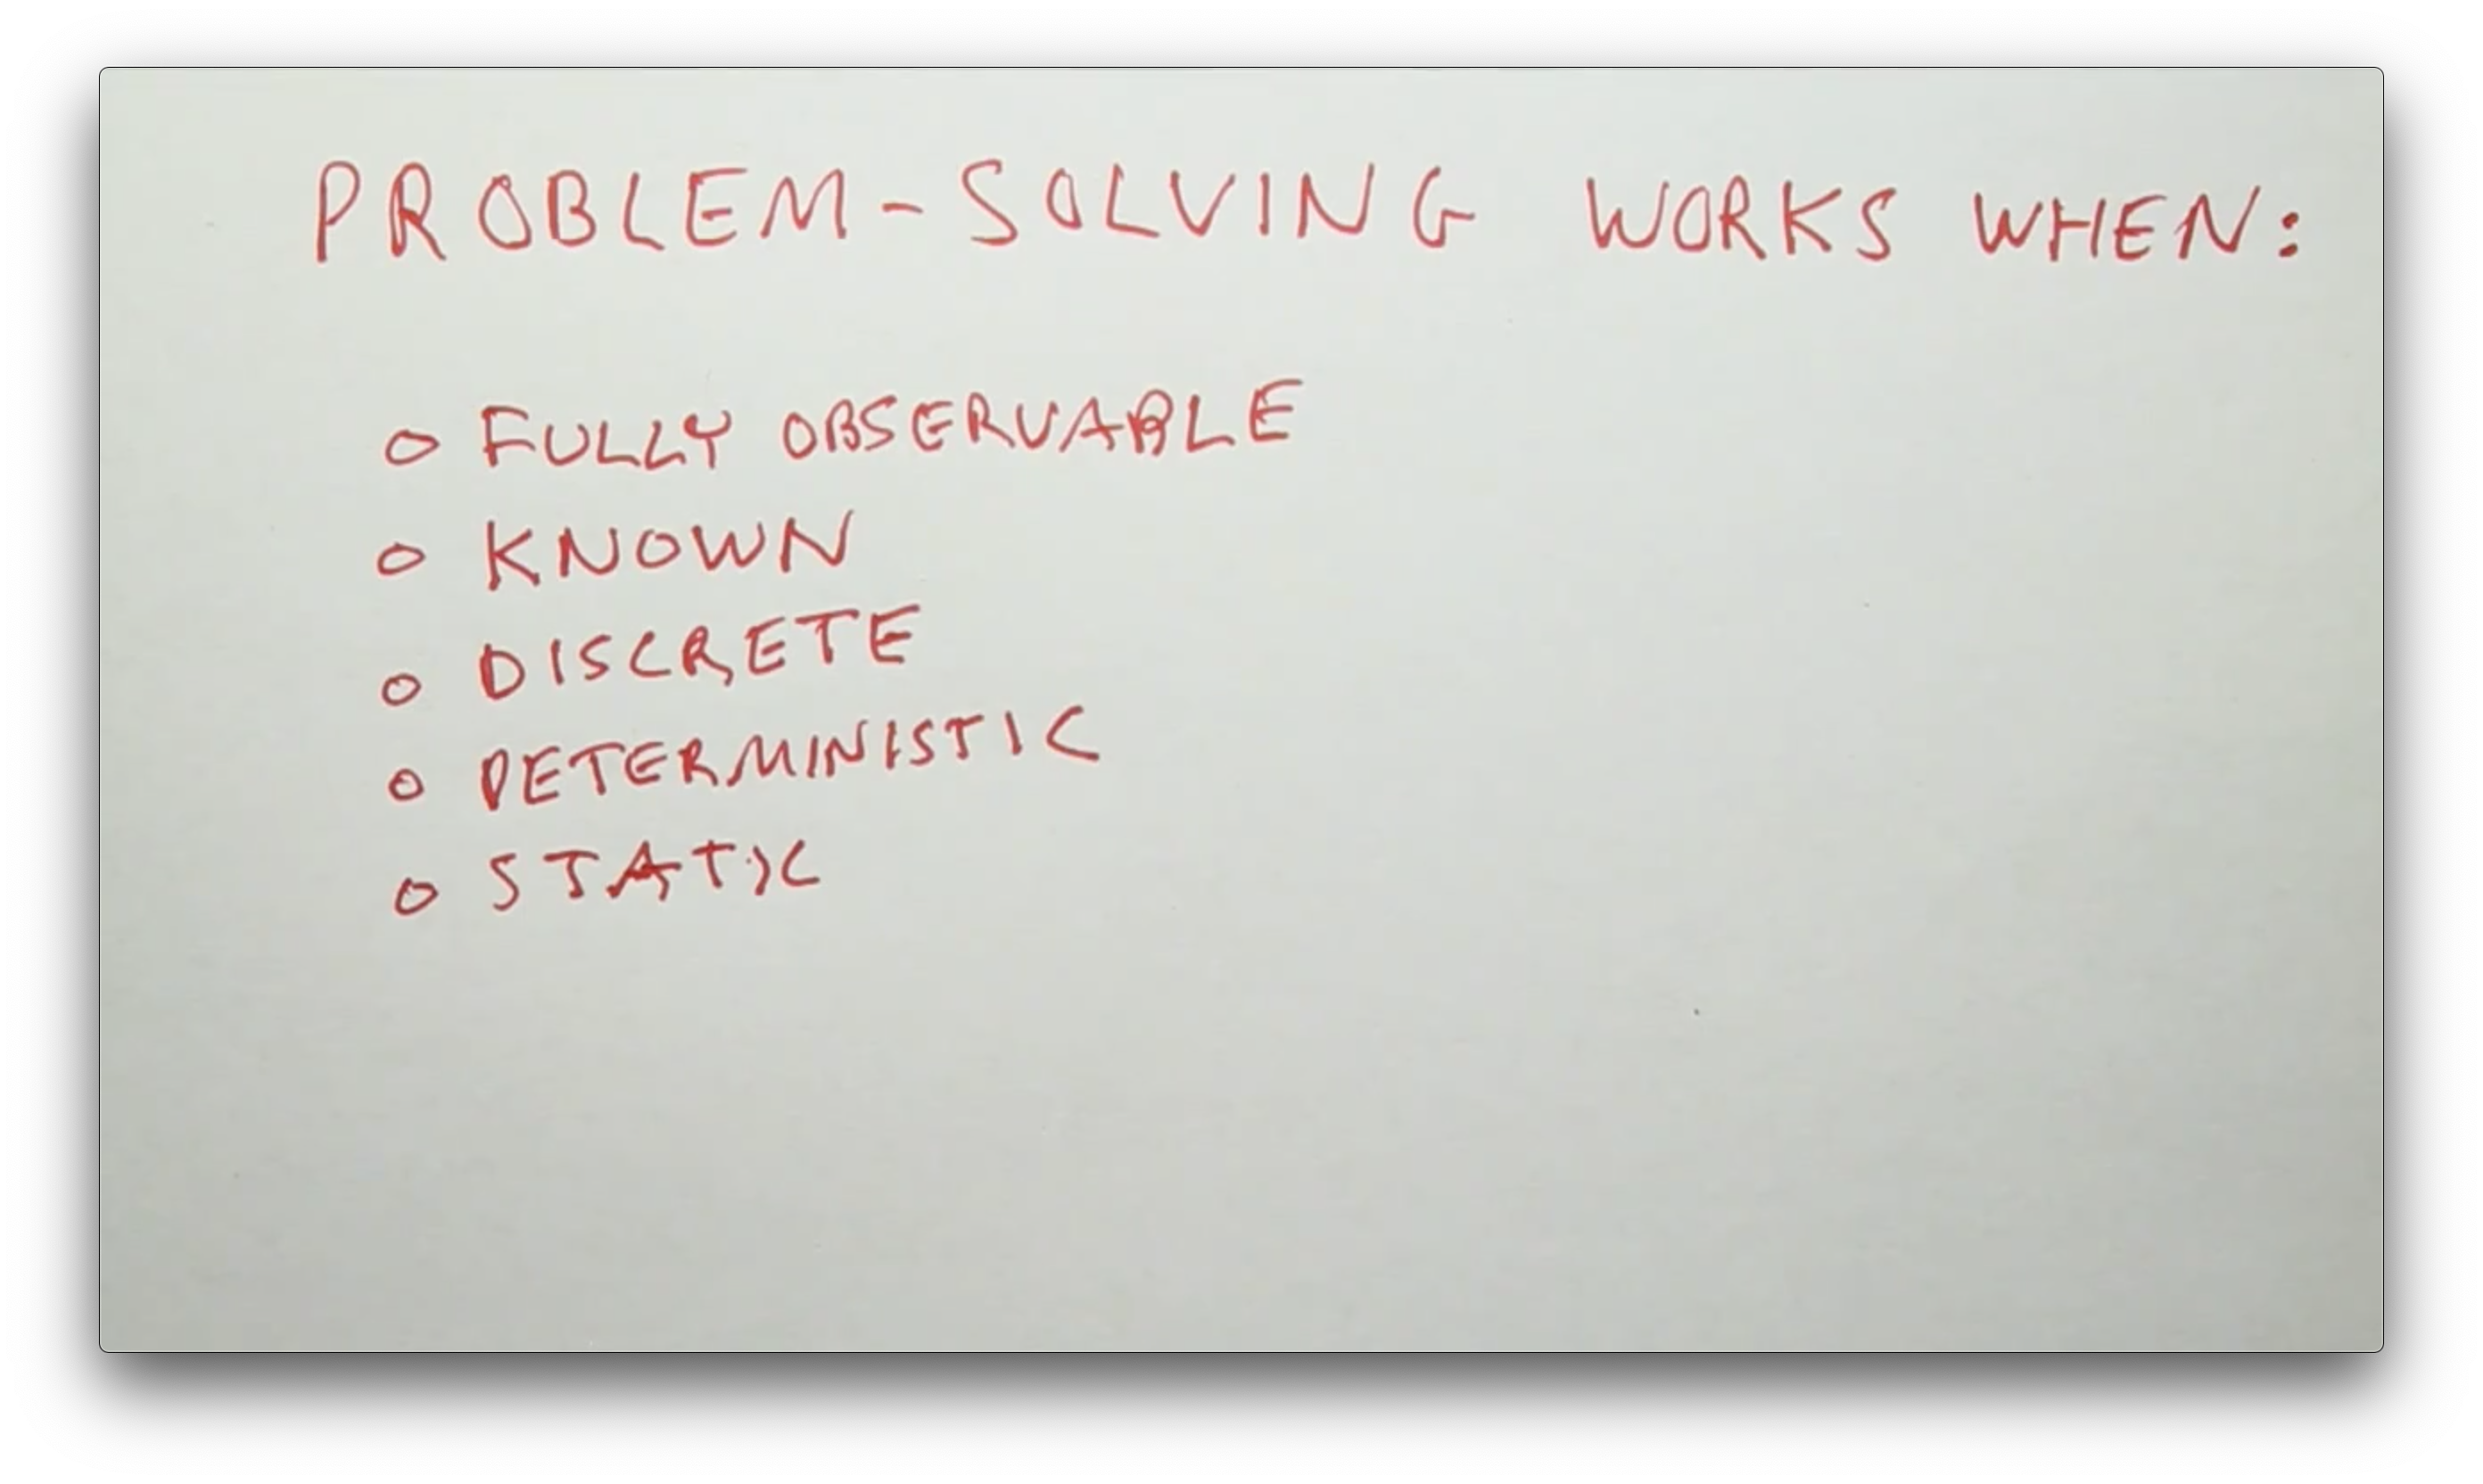 PROBLEM-SOLVING WORKS WHEN:
o FULLY OBSERVABLE
o KNOWN
o DISCRETE
o DETERMINISTIC
o STATIC